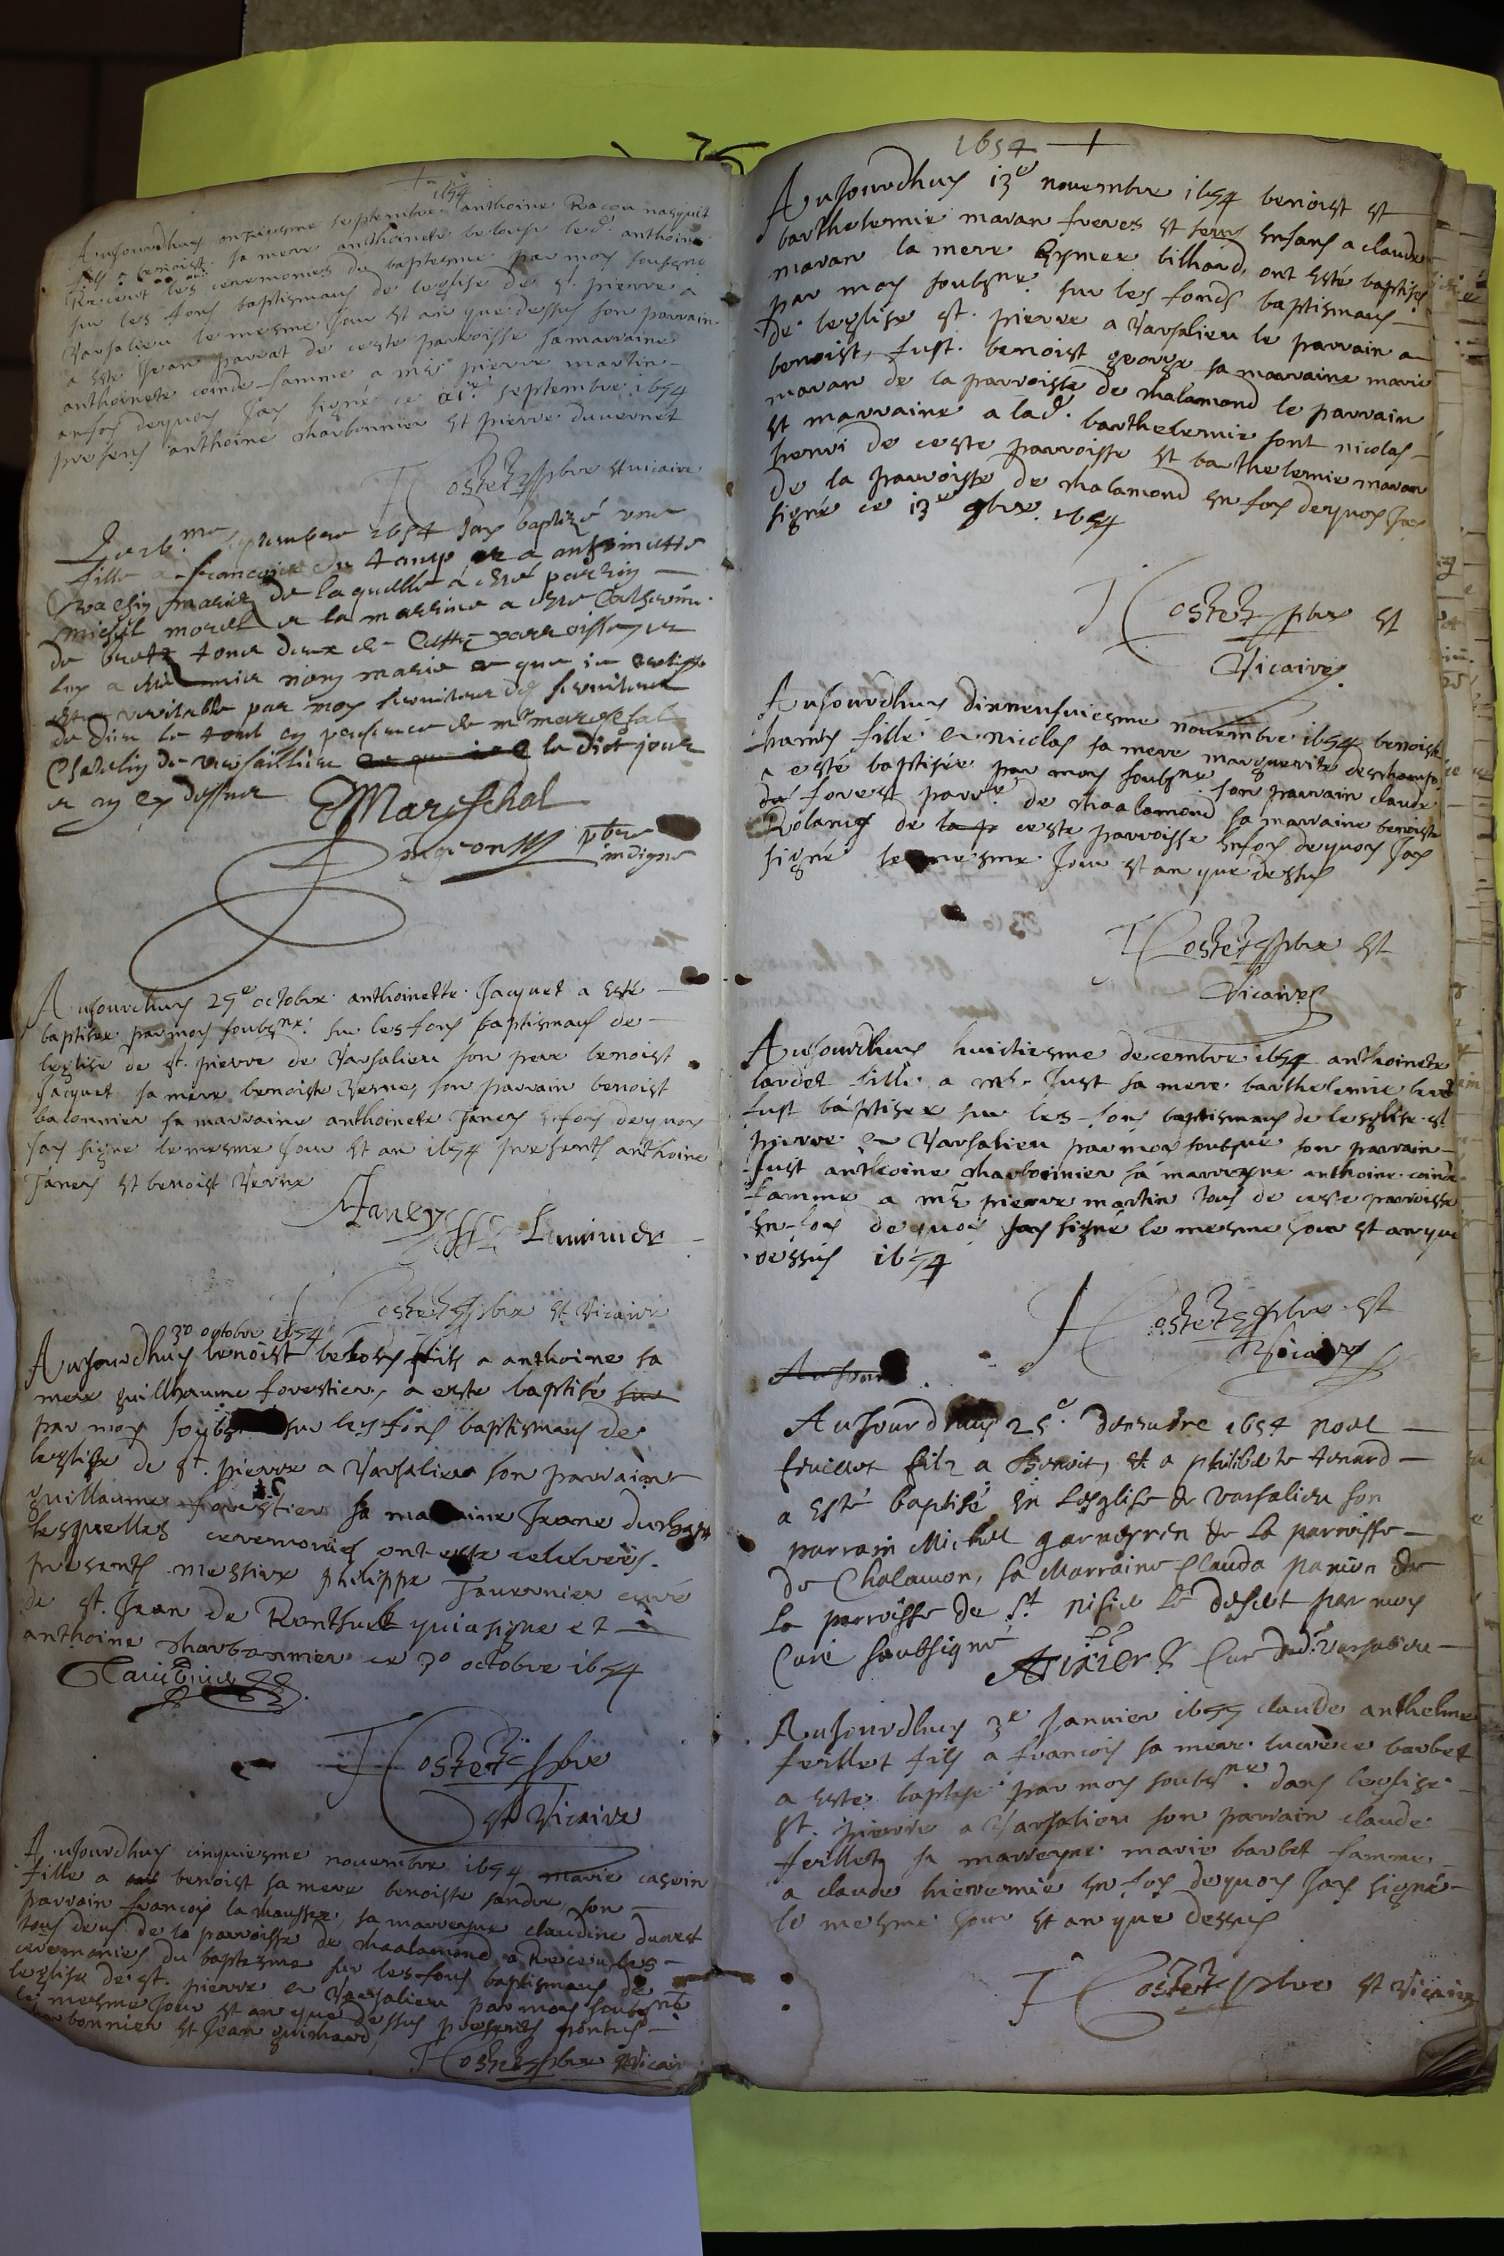 1654
Aujourdhuy onziesme septembre anthoine Racou nasquit
fils a benoist sa mere anthoinete le d. anthoine
Receut les ceremonies du baptesme par moy soubsne
sur les fons baptismaus de leglise de st. pierre a
Varsalieu le mesme jour et an que dessus son parrain
a esté Jean de ceste parroisse sa marraine
anthoinete coinde famme a me. pierre martin
enfoy dequoy Jay signé ce septembre 1654
presens anthoine charbonnier et pierre duvernet
Costet pbre et vicaire
septembre 1654 Jay baptizé une
fille a francois du tamp et a anthoinette
de laquelle a esté parrin
michel morel et la marrine a esté Catherine
de tous deux de ceste parroisse et
luy a esté mis nom marie et que je certiffie
estre veritable par moy serviteur des serviteurs
de Dieu le tout en presence de mr mareschal
Chatelin de versaillieu le dict jour
et an que dessus
Mareschal
pbre
indigne
Aujourdhuy 29e octobre anthoinette Jacquet a esté
baptisee par moy soubsne. sur les fons baptismaus de
leglise de st. pierre de Varsalieu son pere benoist
Jacquet sa mere benoiste Verne, son parrain benoist
balonnier sa marraine anthoinete Janey enfoy dequoy
Jay signé le mesme jour et an 1654 presents anthoine
Janey et benoist Verne
Janey
Costet pbre et Vicaire
30 octobre 1654
Aujourdhuy benoist fils a anthoine sa
mere guillaume forestier, a este baptisé sur
par moy soubs sur les fons baptismaus de
leglise de st. pierre a Varsalieu son parrain
guillaume forestier sa marraine Jeane
lesquelles ceremonies ont este celebreés
presents messire philippe Tavernier curé
de st. Jean de qui a signe et
anthoine charbonnier ce 30 octobre 1654
Costet pbre
et Vicaire
Aujourdhuy cinquiesme novembre 1654 marie casein
fille a benoist sa mere benoiste sandre, son
parrain francois la chausse, sa marreyne claudine
tous deus de la parroisse de chaalamond, a Receu les
ceremonies du baptesme sur les fons baptismaus de
leglise de st. pierre en Varsalieu par moy soubsne
le mesme jour et an que dessus presents
charbonnier et Jean guimard
Costet pbre et Vicaire
1654
Aujourdhuy 13e novembre 1654 benoist et
barthelemie maran freres et seurs enfans a claude
maran la mere eymee bilhard, ont esté baptisés
par moy soubsne sur les fonds baptismaus
de leglise st. pierre a Varsalieu le parrain a
benoist, fust benoist george sa marraine marie
maran de la parroisse de chalamond le parrain
et marraine a lad. barthelemie sont nicolas
henri de ceste parroisse et barthelemie maran
de la parroisse de chalamond enfoy dequoy Jay
signé ce 13e 9bre. 1654
Costet pbre et
Vicaire
Aujourdhuy dixneufviesme novembre 1654 benoiste
fille a nicolas sa mere marguerite deschamps
a esté baptisée par moy soubsne. son parrain claude
du forest parre de chaalamond sa marraine benoiste
Roland de la p ceste parroisse enfoy dequoy Jay
signé le mesme Jour et an que dessus
Costet pbre et
Vicaire
Aujourdhuy huictiesme decembre 1654 anthoinete
lardet fille a me. Just sa mere barthelemie
fust baptisee sur les fons baptismaus de leglise st
pierre en Varsalieu par moy soubsne son parrain
fust anthoine charbonnier sa marreyne anthoine coinde
famme a me pierre martin tous de ceste parroisse
En foy dequoy Jay signé le mesme jour et an que
dessus 1654
Costet pbre et
Vicaire
Aujour
Aujourdhuy 25e. decembre 1654 noel
feuillet filz a Benoit, et a philiberte tenard
a esté baptisé en Lesglise de varsalieu son
parrain Michel de La parroisse
de Chalamon, sa Marraine Clauda de
La parroisse de st nisie Le desert par moy
Curé soubsigné
Curé dud. varsalieu
Aujourdhuy 3e Janvier 1655 claude anthelme
feillet fils a francois sa mere lucrece barbet
a esté baptisé par moy soubsne. dans leglise
st. pierre a Varsalieu son parrain claude
feillet, sa marreyne marie barbet famme
a claude hieremie enfoy dequoy Jay signé
le mesme jour et an que dessus
Costet pbre et Vicaire